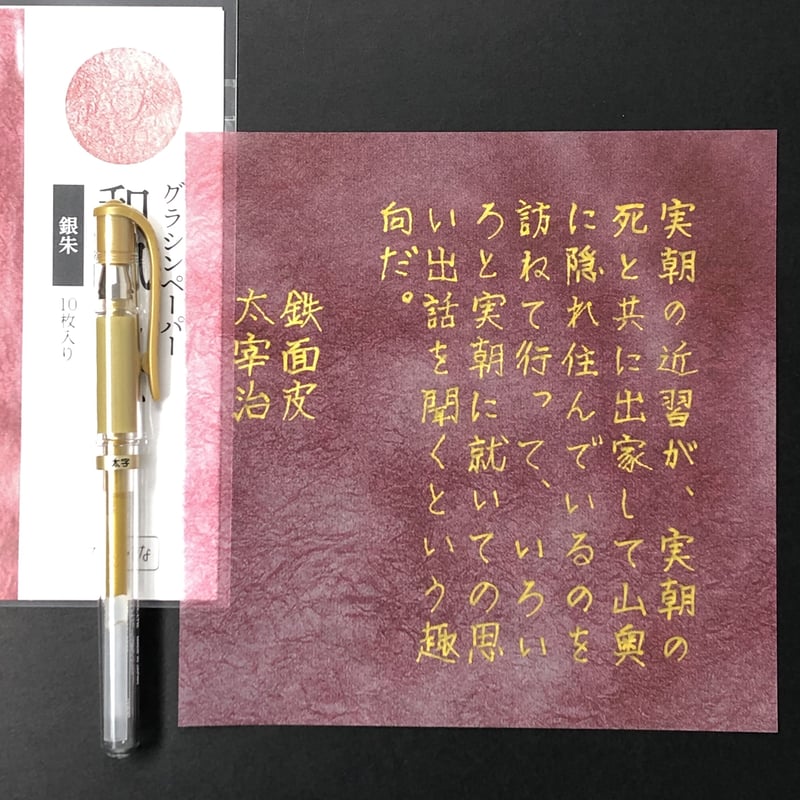 実朝の近習が、実朝の
死と共に出家して山奥
に隠れ住んでいるのを
訪ねて行って、いろい
ろと実朝に就いての思
い出話を聞くという趣
向だ。
鉄面皮
太宰治
グラシンペーパー
和
銀朱
10枚入り
太字
な